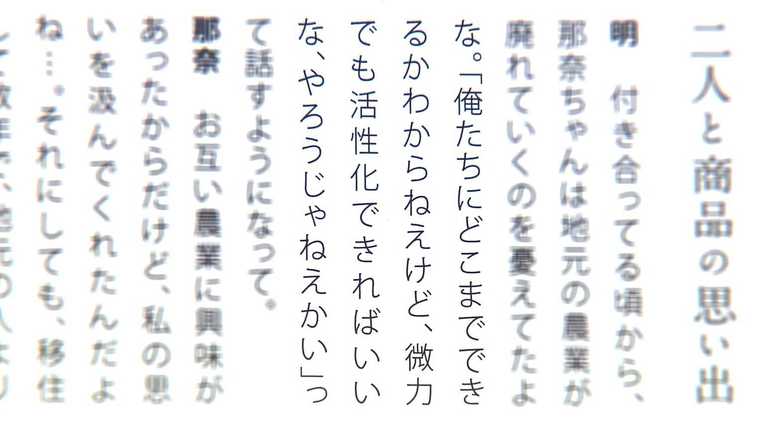 二人と商品の思い出
明　付き合ってる頃から、
那奈ちゃんは地元の農業が
廃れていくのを憂えてたよ
な。「俺たちにどこまででき
るかわからねえけど、微力
でも活性化できればいい
な、やろうじゃねえかい」っ
て話すようになって。
那奈　お互い農業に興味が
あったからだけど、私の思
いを汲んでくれたんだよ
ね…。それにしても、移住